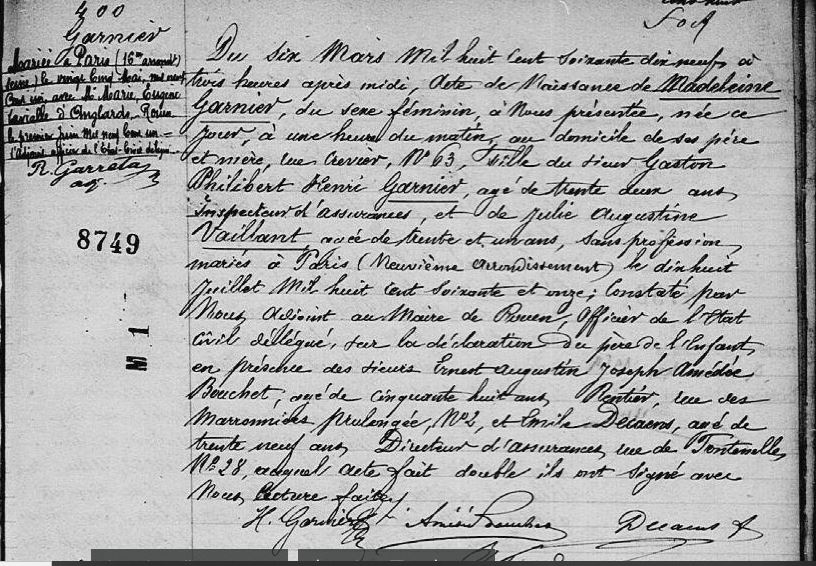 400
Garnier
Mariée à Paris (16me arrondt
Seine) le vingt cinq Mai, mil neuf
Cent un avec M. Marie, Eugène
d'Anglards. Rouen
le premier juin Mil neuf Cent un
l'adjoint officier de l'Etat-Civil délégué
R. Garreta
adj.
8749
M 1
Du six Mars Mil huit Cent soixante dix neuf, à
trois heures après midi, Acte de Naissance de Madeleine
Garnier, du sexe féminin, à Nous présentée, née ce
jour, à une heure du matin, au domicile de ses père
et mère, rue Crevier, No 63, fille du sieur Gaston
Philibert Henri Garnier, agé de trente deux ans,
Inspecteur d'assurances, et de Julie Augustine
Vaillant, agée de trente et un ans, sans profession,
mariés à Paris (Neuvième arrondissement) le dix huit
Juillet Mil huit Cent soixante et onze; Constaté par
Nous, Adjoint au Maire de Rouen, Officier de l'Etat
Civil délégué, sur la déclaration du père de l'Enfant,
en présence des sieurs Ernest Augustin Joseph Amédée
Bouchet, agé de cinquante huit ans, Rentier, rue des
Marronniers prolongée, No 2, et Emile Decaens, agé de
trente neuf ans, Directeur d'assurances, rue de Fontenelle,
No 28, auquel acte fait double ils ont signé avec
Nous, lecture faite,
H. Garnier Decaens